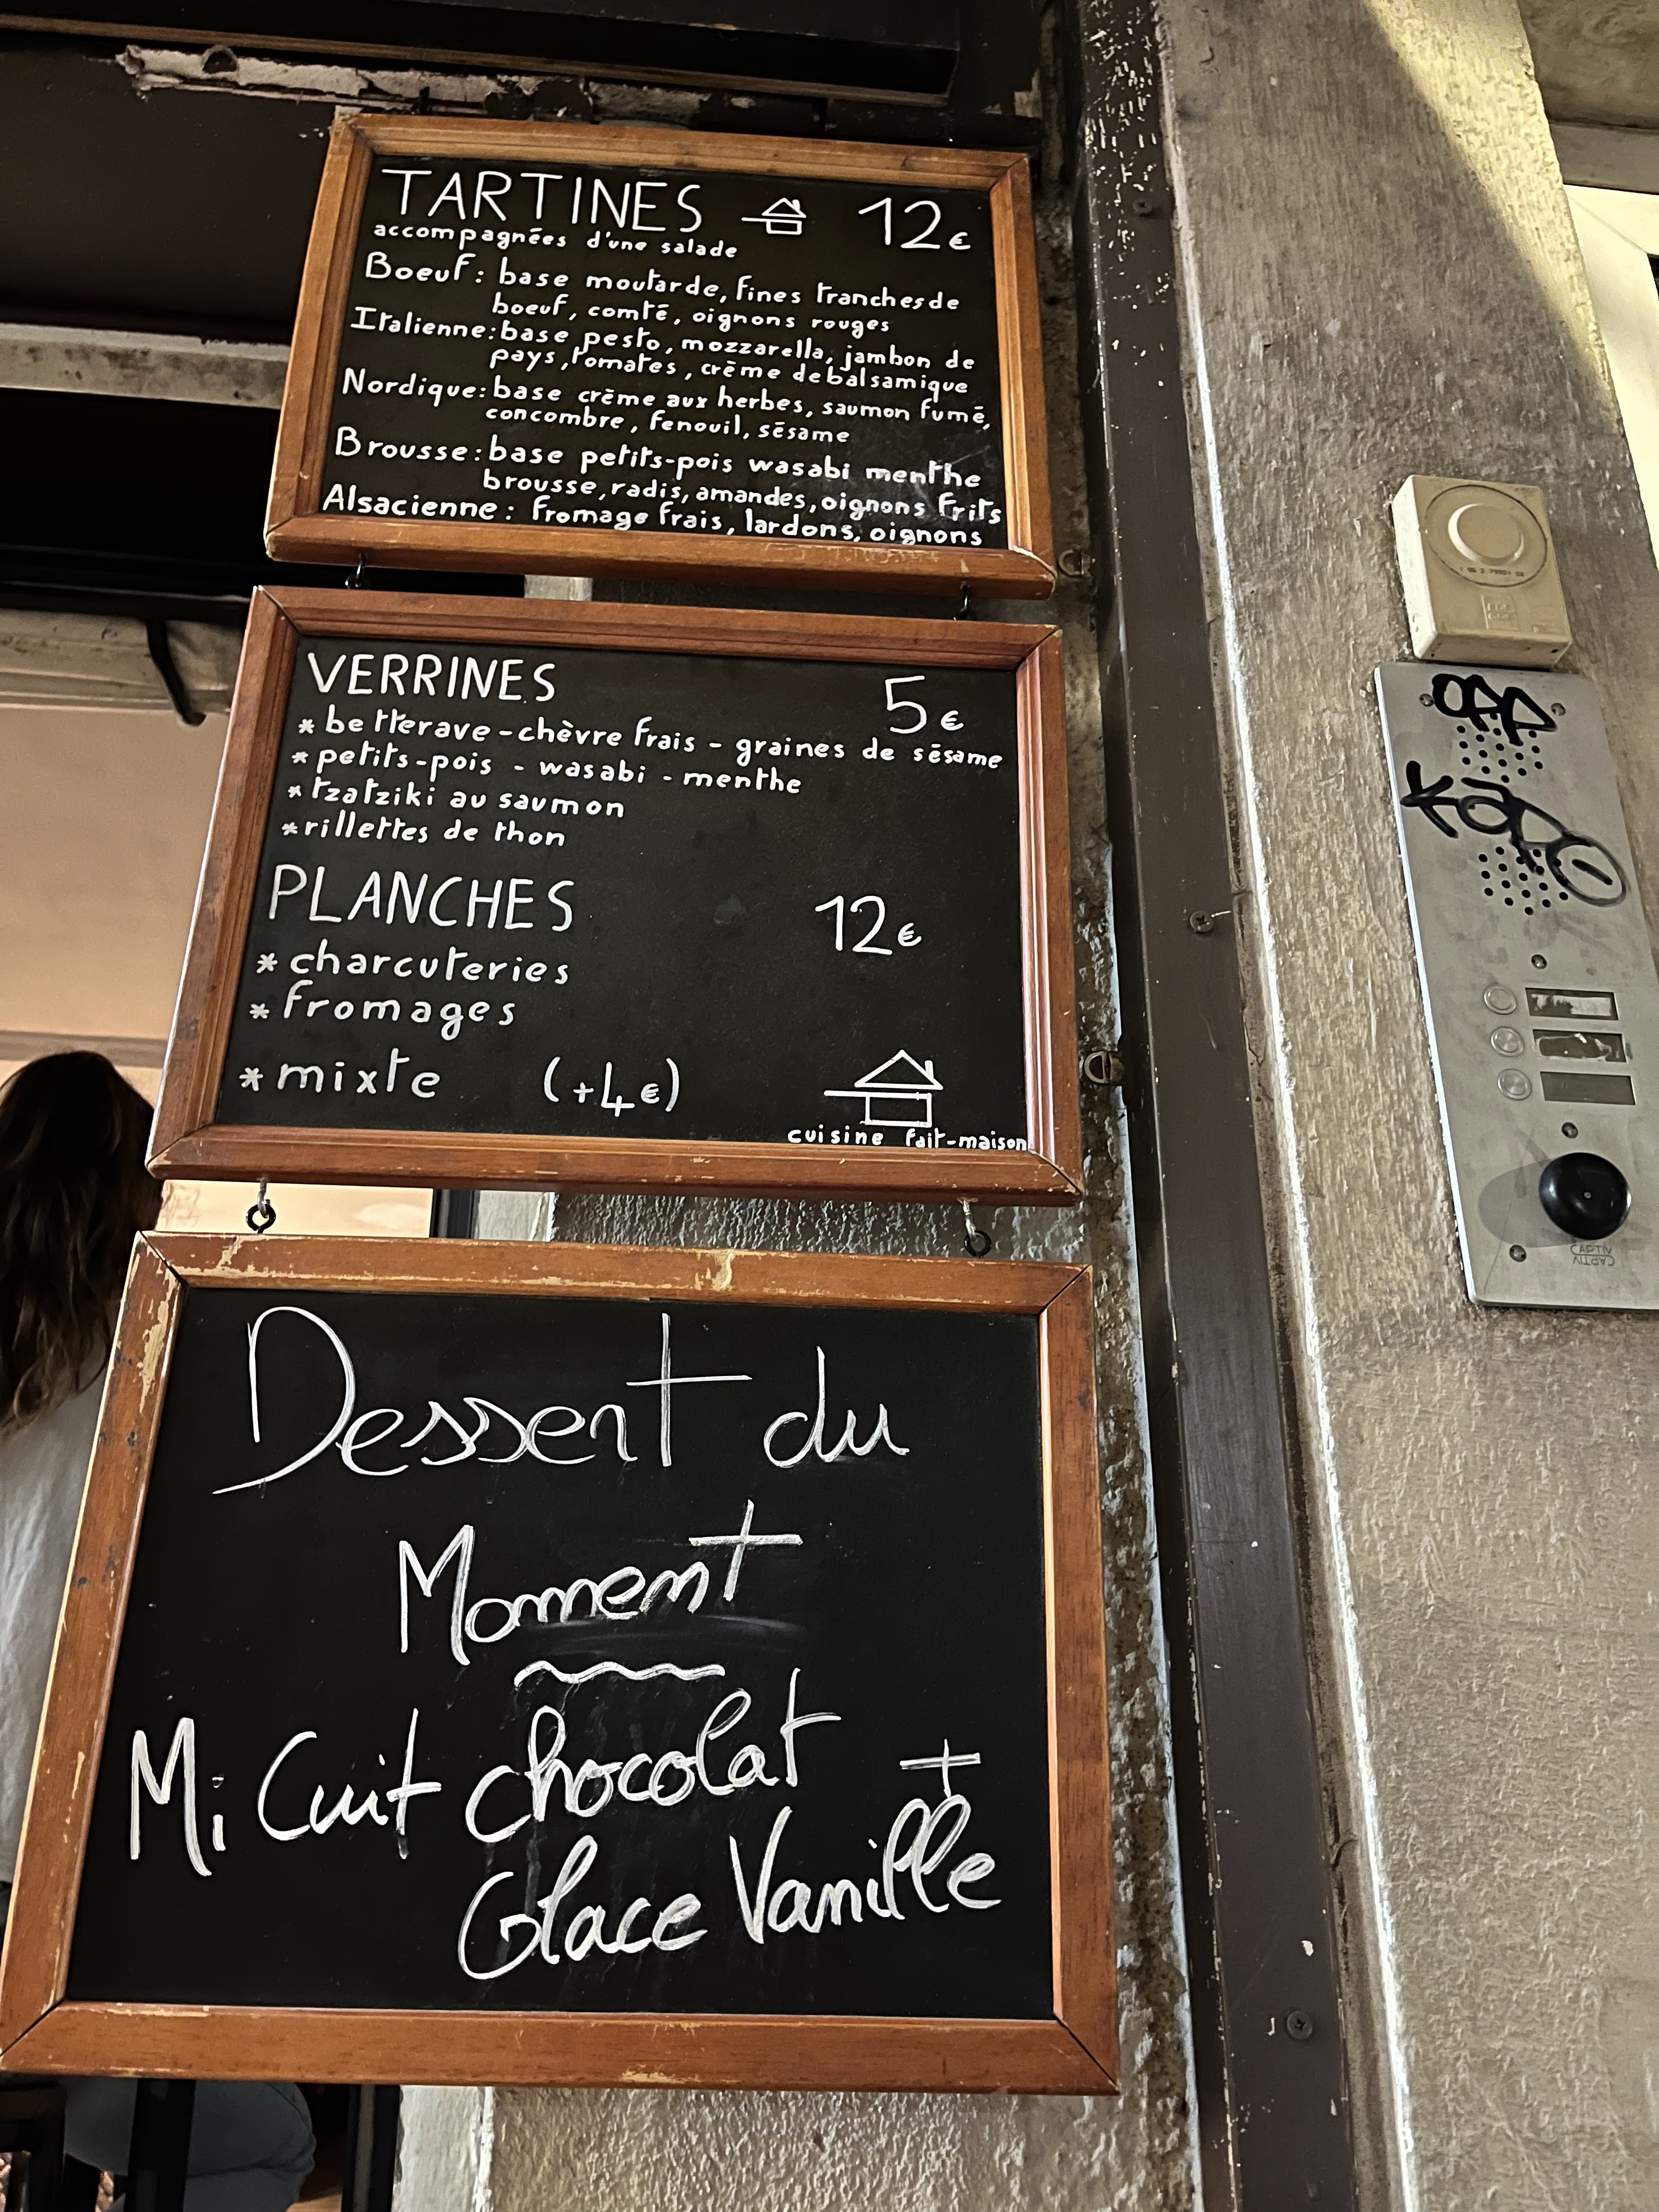 TARTINES 12€
accompagnées d'une salade
Boeuf : base moutarde, fines tranches de
boeuf, comté, oignons rouges
Italienne : base pesto, mozzarella, jambon de
pays, tomates, crème de balsamique
Nordique : base crème aux herbes, saumon fumé,
concombre, fenouil, sésame
Brousse : base petits-pois wasabi menthe
brousse, radis, amandes, oignons frits
Alsacienne : fromage frais, lardons, oignons
VERRINES 5€
* betterave - chèvre frais - graines de sésame
* petits-pois - wasabi - menthe
* tzatziki au saumon
* rillettes de thon
PLANCHES 12€
* charcuteries
* fromages
* mixte (+4€)
cuisine fait-maison
Dessert du
Moment
Mi Cuit chocolat +
Glace Vanille
CAPTIV
CAPTIV